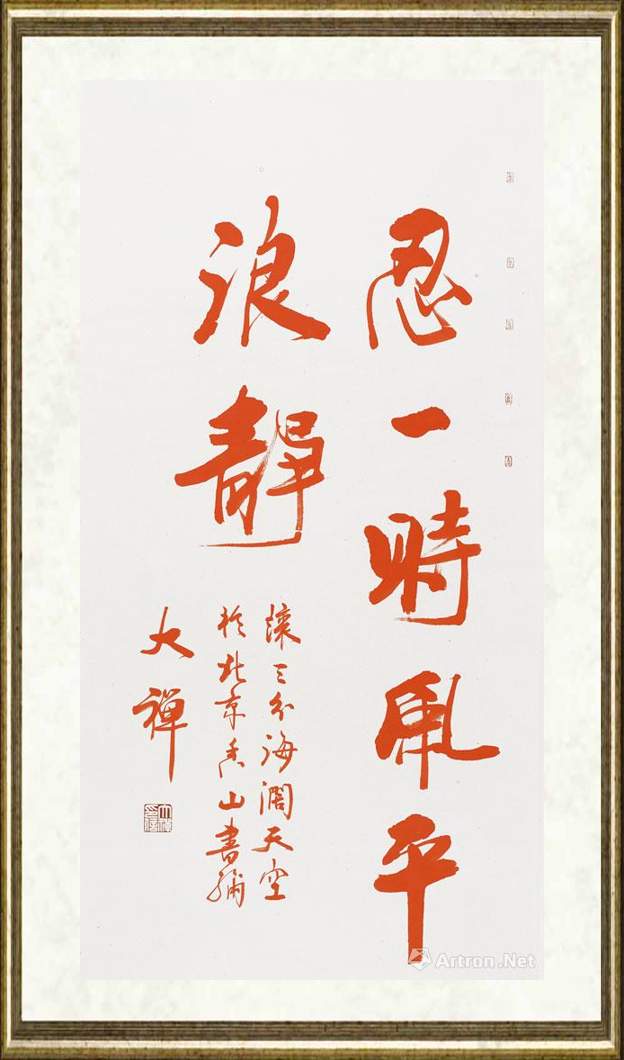 忍一時風平
浪靜
讓三分海闊天空
於北京香山書補
大禪
Artron.Net